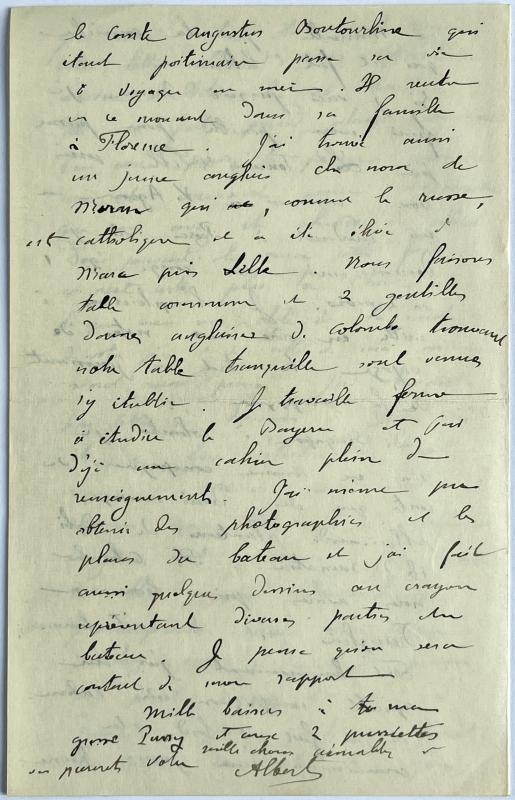 le comte Augustus Boutourline qui
étant poitrinaire passe sa vie
à voyager en mer. Il rentre
en ce moment dans sa famille
à Florence. J'ai trouvé aussi
un jeune anglais du nom de
qui, comme le russe,
est catholique et a été élevé à
Marcq près Lille. Nous faisons
table commune et 2 gentilles
dames anglaises de Colombo trouvant
notre table tranquille sont venues
s'y établir. Je travaille ferme
à étudier le Bayern et j'ai
déjà un cahier plein de
renseignements. J'ai même pu
obtenir des photographies et les
plans du bateau et j'ai fait
aussi quelques dessins au crayon
représentant diverses parties du
bateau. Je pense qu'on sera
content de mon rapport
Mille baisers à toi ma
grosse et aux 2
mille choses aimables à
parents votre Albert